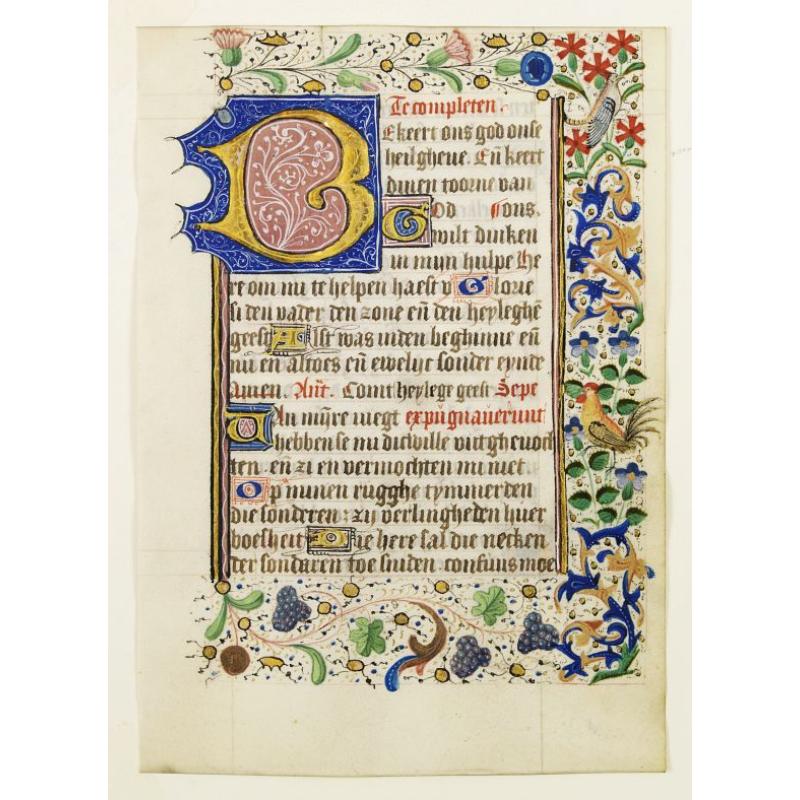 Te completen.
BEkeert ons god onse
heilgheue. Eñ keert
dinen toorne van
GOd ons.
wilt dinken
in mijn hulpe He
re om mi te helpen haest v Glorie
si den vader den zone eñ den heyleghē
geest Alst was inden beghinne eñ
nu en altoes eñ ewelijc sonder eynde
Amen. Ant. Comt heylege geest Sepe
VAn mijre iuegt expugnauerunt
hebben se mi dicwille wtgheuoch
ten. en zi en vermochten mi niet.
Op minen rugghe tymmerden
die sonderen: zij verlingheden huer
boesheit Die here sal die necken
der sondaren toe sniden. confuus moe